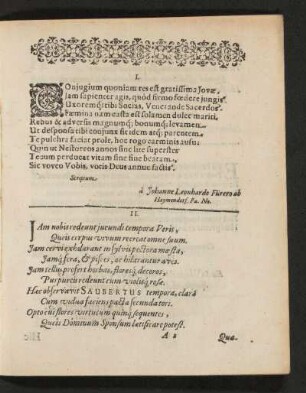 I.
COnjugium quoniam res est gratissima Jovæ,
Jam sapienter agis, quòd firmo fœdere jungis
Uxoremq; tibi socias, Venerande Sacerdos.
Fæmina nam casta est solamen dulce mariti,
Rebus & adversis magnumq; bonumq; levamen.
Ut desponsa tibi conjunx sit idem atq; parentem
Te pulchra faciat prole, hoc rogo carminis ausu:
Quin ut Nestoreos annos sine lite superstes
Tecum producat vitam sine fine beatam.
Sic voveo Vobis, votis Deus annue factis.
Scriptum
à Johanne Leonhardo Fürero ab
Haymendorf, Pa. No.
II.
IAm nobis redeunt jucundi tempora Veris,
Queis corpus vivum recreat omne suum.
Jam cervi exhilarant in sylvis pectora mæsta,
Jamq; feræ, & pisces, ac hilarantur aves.
Jam tellus profert herbas, floresq; decoros,
Purpurei redeunt cum violisq; rosæ.
Hæc observavit SAUBERTUS tempora, clarâ
Cum viduâ faciens pacta secunda tori.
Opto cui flores virtutum quinq; sequentes,
Queis Dominum Sponsum lætificare potest.
A 2
Quæ.